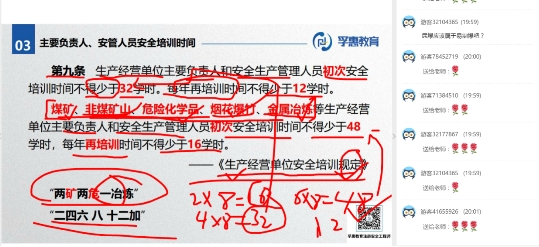 03
主要负责人、安管人员安全培训时间
孚惠教育
第九条 生产经营单位主要负责人和安全生产管理人员初次安全
培训时间不得少于32学时。每年再培训时间不得少于12学时。
煤矿、非煤矿山、危险化学品、烟花爆竹、金属冶炼等生产经营
单位主要负责人和安全生产管理人员初次安全培训时间不得少于48
学时，每年再培训时间不得少于16学时。
——《生产经营单位安全培训规定》
“两矿两危一冶炼”
“二四六 八 十二加”
2×8=
6×8=48
4×8=32
12
孚惠教育注册安全工程师
游客32104365 (19:59)
游客78452719 (20:00)
送给老师：
游客71384510 (19:59)
送给老师：
游客32177867 (19:59)
送给老师：
游客32104365 (19:59)
送给老师：
游客41655926 (20:01)
送给老师：